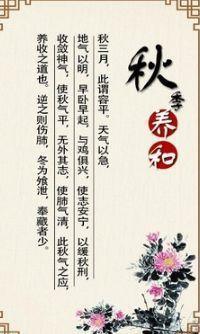 秋季养和
秋三月，此谓容平。天气以急，
地气以明，早卧早起，与鸡俱兴，使志安宁，以缓秋刑，
收敛神气，使秋气平，无外其志，使肺气清，此秋气之应，
养收之道也。逆之则伤肺，冬为飧泄，奉藏者少。